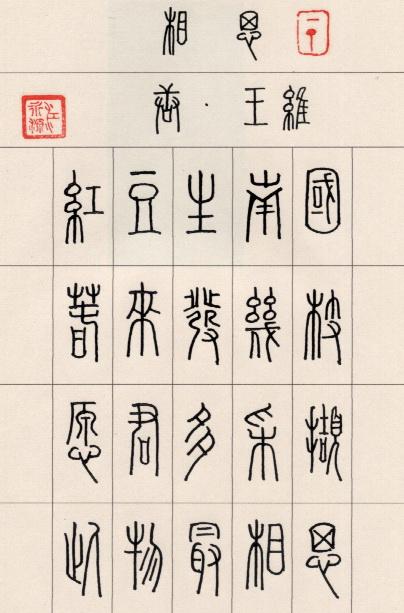 相思
唐·王維
紅豆生南國
春來發幾枝
愿君多采擷
此物最相思